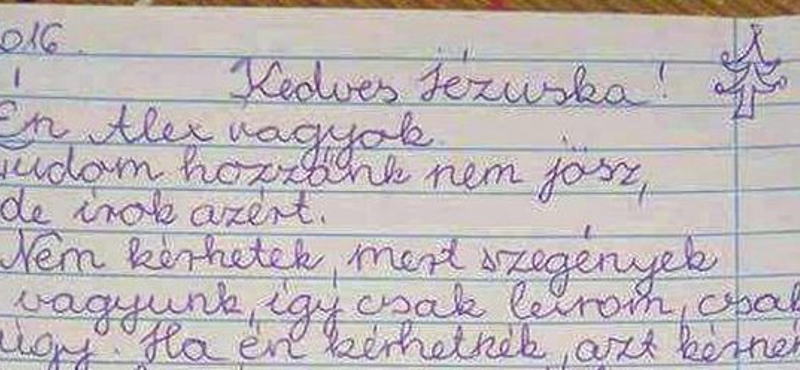 016.
Kedves Jézuska!
Én Alex vagyok.
tudom hozzánk nem jösz,
de irok azért.
Nem kérhetek, mert szegények
vagyunk, igy csak leirom, csak
úgy. Ha én kérhetnék, azt kérné